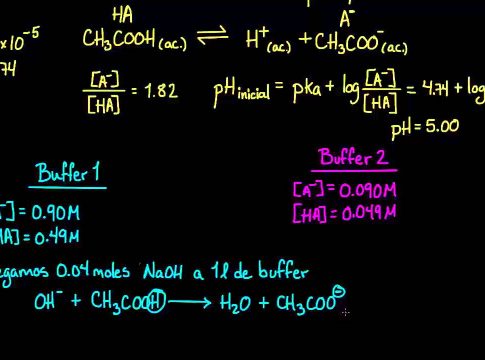 HA A⁻
×10⁻⁵ CH₃COOH(ac.) ⇌ H⁺(ac.) + CH₃COO⁻(ac.)
74
[A⁻]/[HA] = 1.82 pH inicial = pka + log [A⁻]/[HA] = 4.74 + log
pH = 5.00
Buffer 1 Buffer 2
⁻] = 0.90M [A⁻] = 0.090M
HA] = 0.49M [HA] = 0.049M
egamos 0.04 moles NaOH a 1l de buffer
OH⁻ + CH₃COOH ⟶ H₂O + CH₃COO⁻